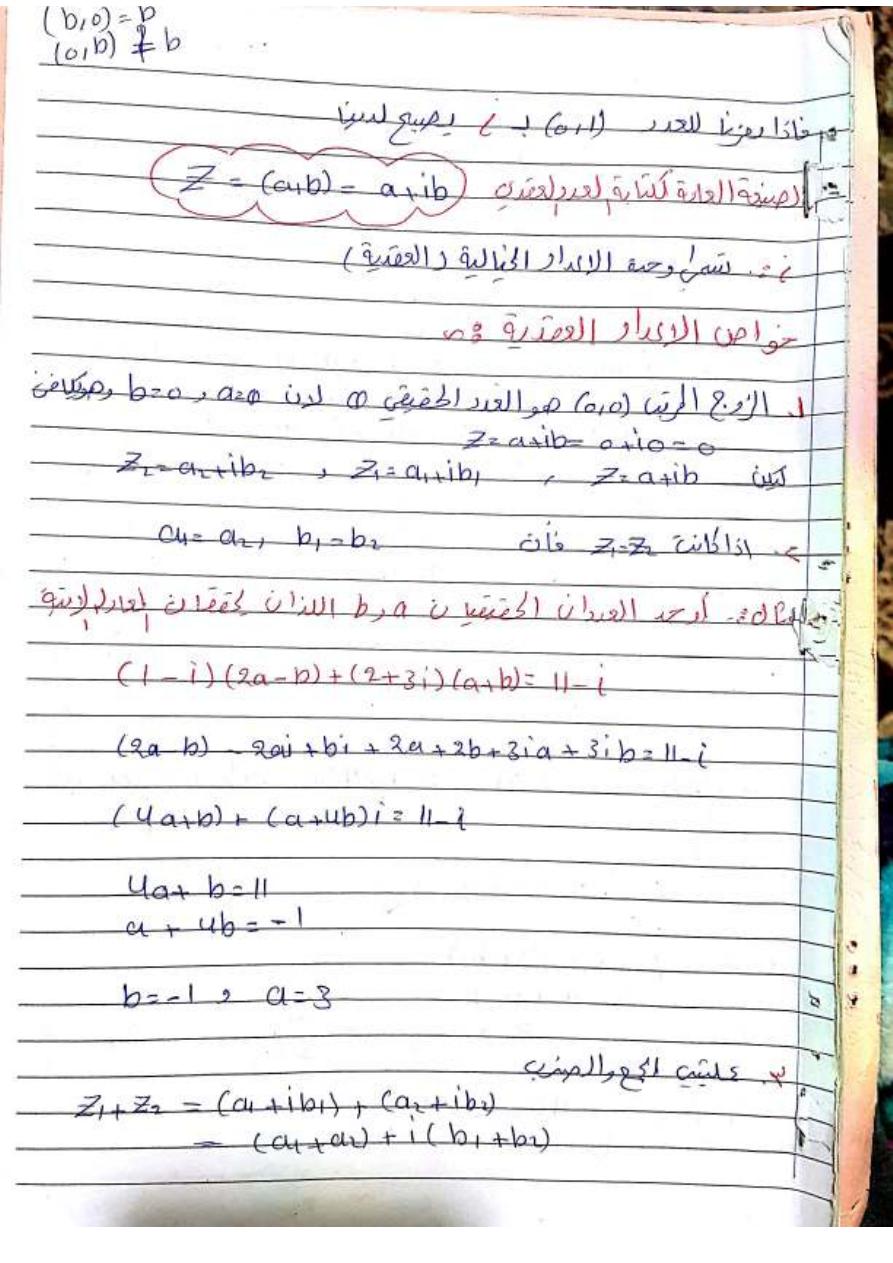 (b,0) = b
(0,b) ≠ b
فاذا رمزنا للعدد (0,1) بـ i يصبح لدينا
الصيغة العامة لكتابة العدد العقدي Z = (a,b) = a+ib
i :- تسمى وحدة الاعداد الخيالية (العقدية)
خواص الاعداد العقدية :-
1. الزوج المرتب (0,0) هو العدد الحقيقي 0 لان a=0 , b=0
Z = a+ib = 0+i0 = 0
Z=a+ib , Z₁=a₁+ib₁ , Z₂=a₂+ib₂
٢. اذا كانت Z₁=Z₂ فأن a₁=a₂, b₁=b₂
مثال :- أوجد العددان الحقيقيان a و b اللذان يحققان المعادلة الاتية
(1-i)(2a-b)+(2+3i)(a+b)= 11-i
(2a-b) - 2ai + bi + 2a + 2b + 3ia + 3ib = 11-i
(4a+b) + (a+4b)i = 11-i
4a+ b = 11
a + 4b = -1
b=-1 , a=3
٣. عمليتي الجمع والضرب
Z₁+Z₂ = (a₁+ib₁) + (a₂+ib₂)
= (a₁+a₂) + i(b₁+b₂)